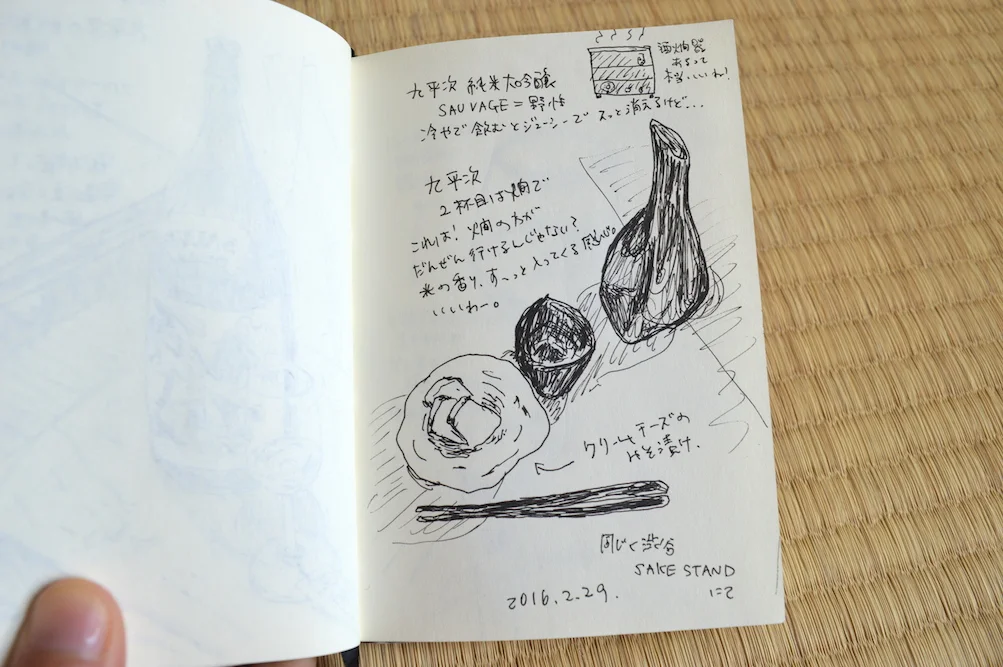 酒燗器
あるって
本当いいわ!
九平次 純米大吟醸
SAUVAGE=野性
冷やで飲むとジューシーでスッと消えるけど...
九平次
2杯目は燗で
これは!燗の方が
だんぜん行けるんじゃない?
米の香り、す〜っと入ってくる感じ。
いいわー。
クリームチーズの
みそ漬け.
同じく渋谷
SAKE STAND
にて
2016.2.29.